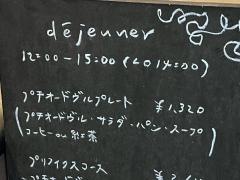 déjeuner
12:00-15:00 (LO 14:00)
プチオードヴルプレート ¥1,320
(プチオードヴル・サラダ・パン・スープ
コーヒー ou 紅茶)
プリフィクスコース